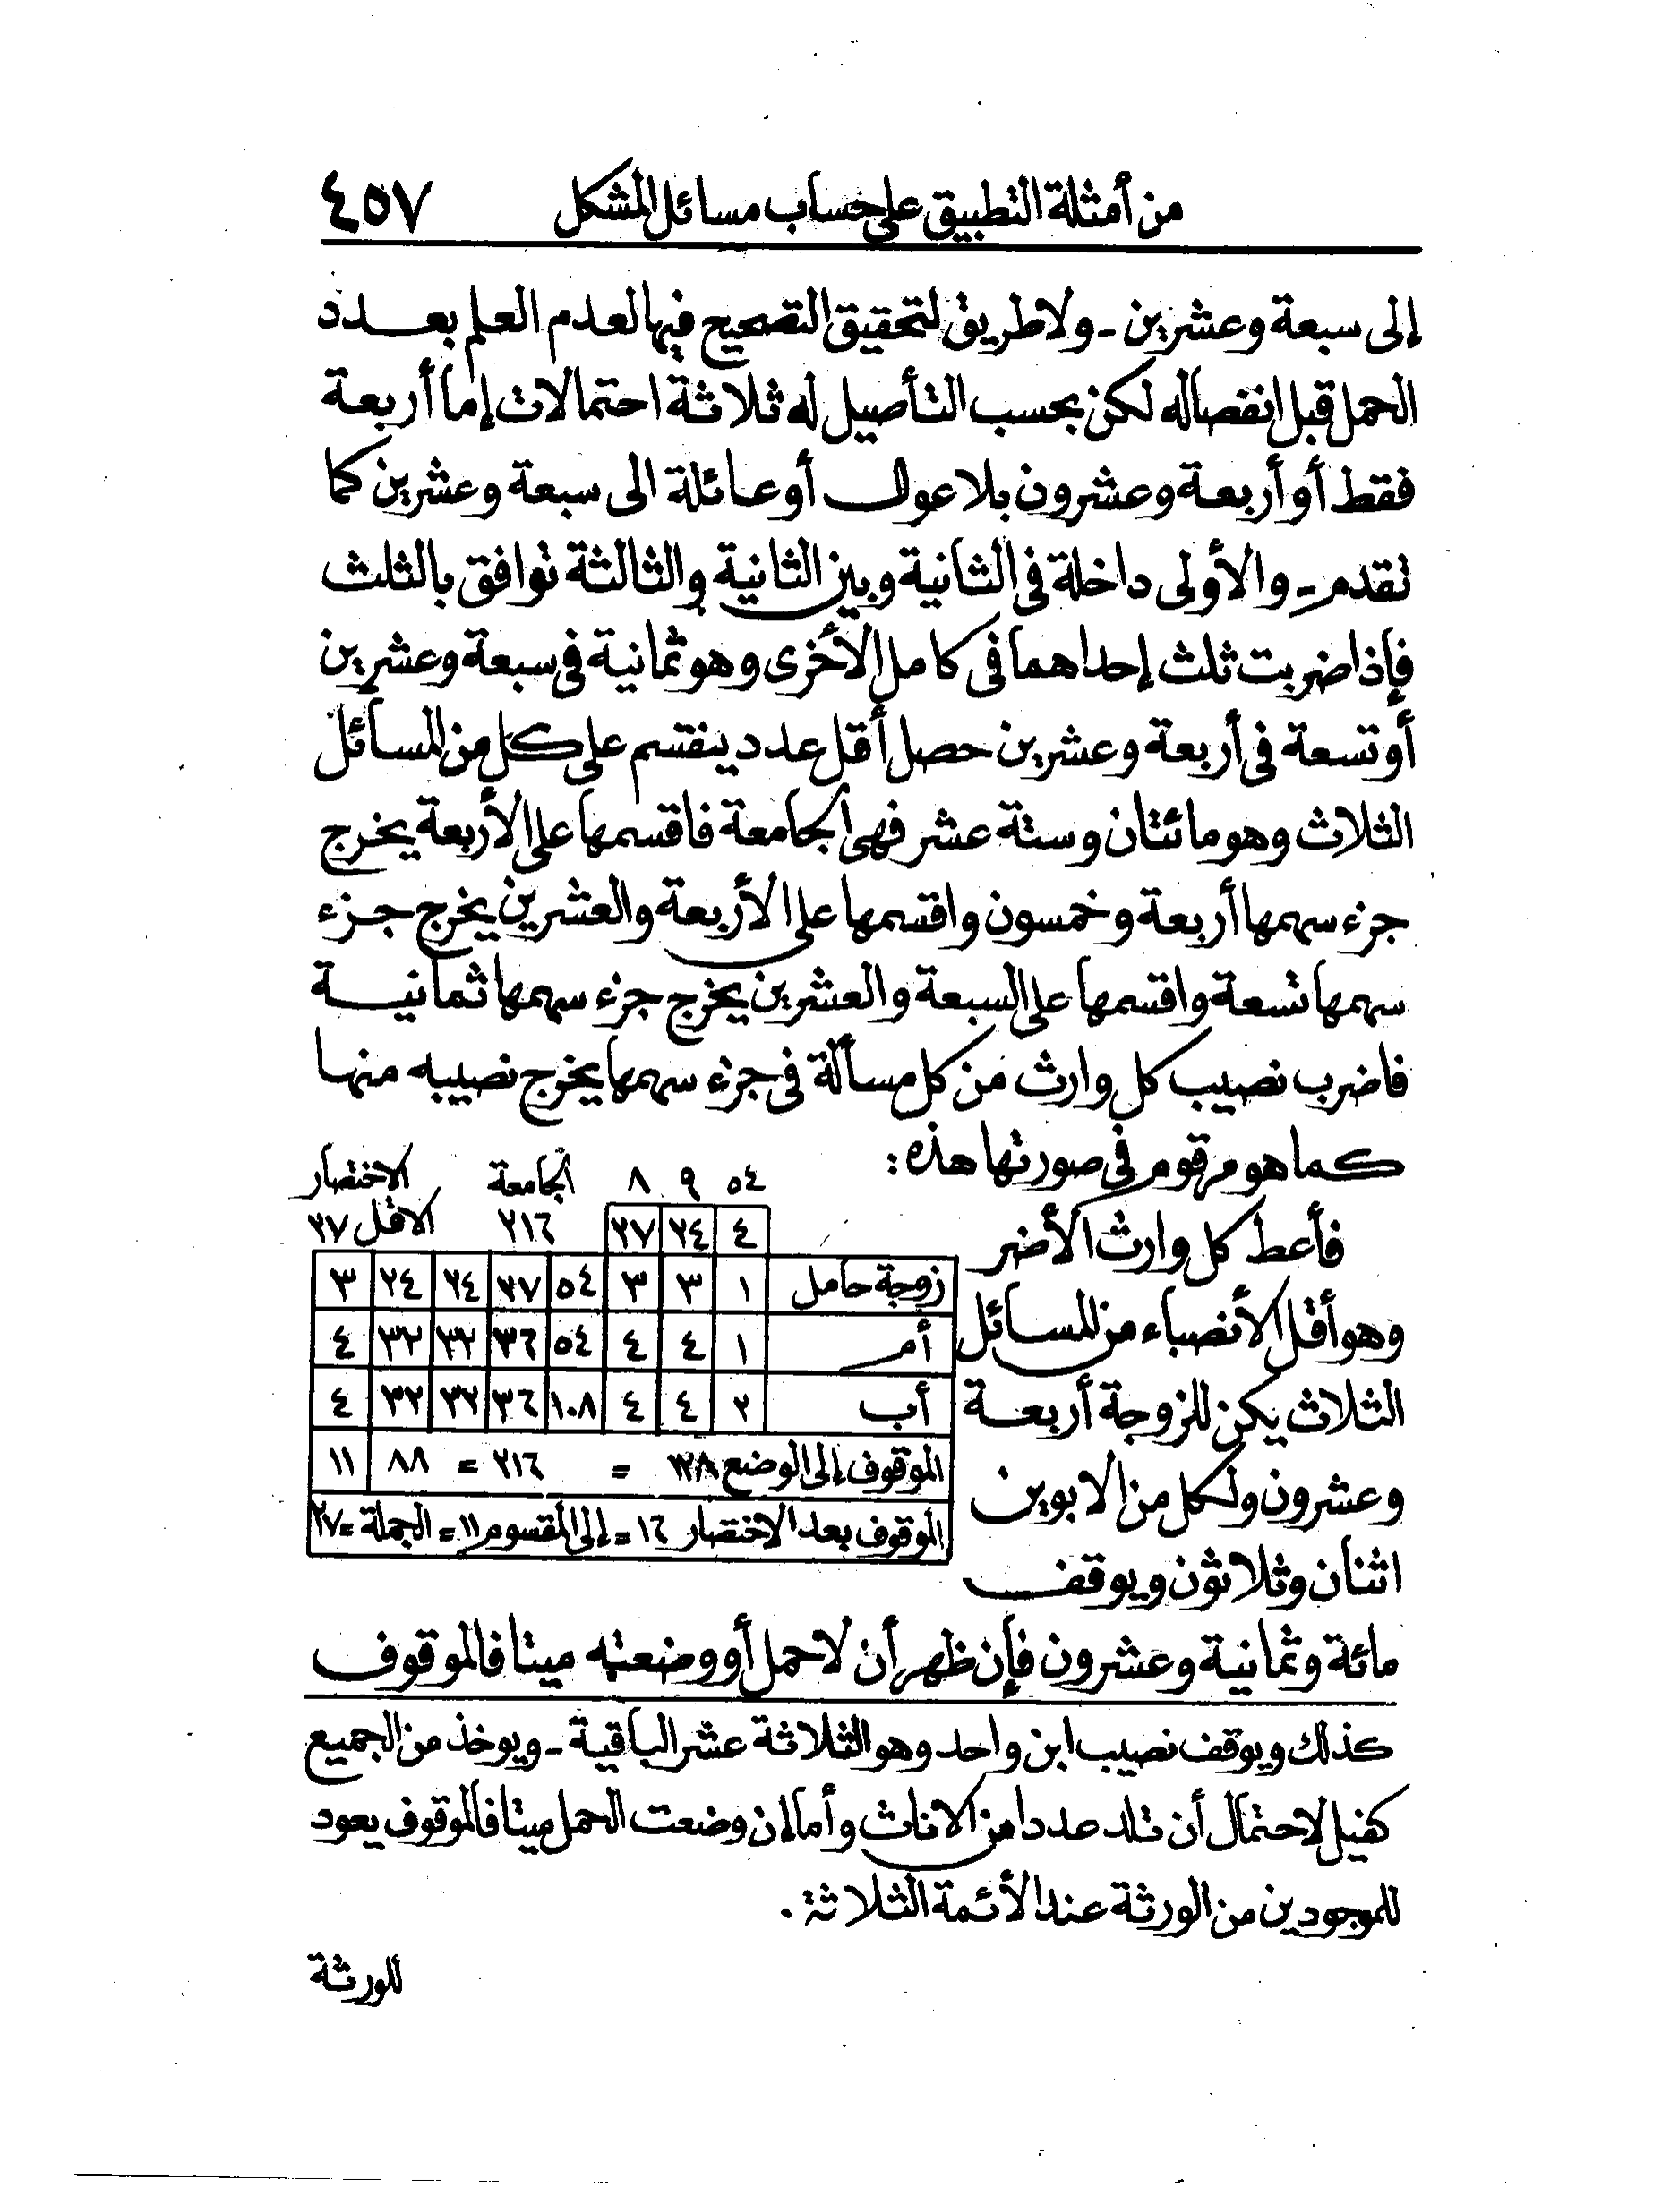 من أمثلة التطبيق على حساب مسائل المشكل ٤٥٧
إلى سبعة وعشرين - ولا طريق لتحقيق التصحيح فيها لعدم العلم بعدد
الحمل قبل انفصاله لكن بحسب التأصيل له ثلاثة احتمالات إما أربعة
فقط أو أربعة وعشرون بلا عول أو عائلة الى سبعة وعشرين كما
تقدم - والأولى داخلة في الثانية وبين الثانية والثالثة توافق بالثلث
فإذا ضربت ثلث إحداهما في كامل الأخرى وهو ثمانية في سبعة وعشرين
أو تسعة في أربعة وعشرين حصل أقل عدد ينقسم على كل من المسائل
الثلاث وهو مائتان وستة عشر فهى الجامعة فاقسمها على الأربعة يخرج
جزء سهمها أربعة وخمسون واقسمها على الأربعة والعشرين يخرج جزء
سهمها تسعة واقسمها على السبعة والعشرين يخرج جزء سهمها ثمانية
فاضرب نصيب كل وارث من كل مسألة في جزء سهمها يخرج نصيبه منها
كما هو مرقوم في صورتها هذه :
٥٤ ٩ ٨ الجامعة الاختصار
٤ ٢٤ ٢٧ ٢١٦ الاقل ٢٧
زوجة حامل ١ ٣ ٣ ٥٤ ٢٧ ٢٤ ٢٤ ٣
أم ١ ٤ ٤ ٥٤ ٣٦ ٣٢ ٣٢ ٤
أب ٢ ٤ ٤ ١٠٨ ٣٦ ٣٢ ٣٢ ٤
الموقوف إلى الوضع ١٢٨ = ٢١٦ = ٨٨ ١١
الموقوف بعد الاختصار ١٦ = إلى المقسوم ١١ = الجملة = ٢٧
فأعط كل وارث الأضر
وهو أقل الأنصباء من المسائل
الثلاث يكن للزوجة أربعة
وعشرون ولكل من الابوين
اثنان وثلاثون ويوقف
مائة وثمانية وعشرون فإن ظهر أن لا حمل أو وضعته ميتا فالموقوف
كذلك ويوقف نصيب ابن واحد وهو الثلاثة عشر الباقية - ويوخذ من الجميع
كفيل لاحتمال أن تلد عددا من الاناث وأما إن وضعت الحمل ميتا فالموقوف يعود
للموجودين من الورثة عند الأئمة الثلاثة .
للورثة